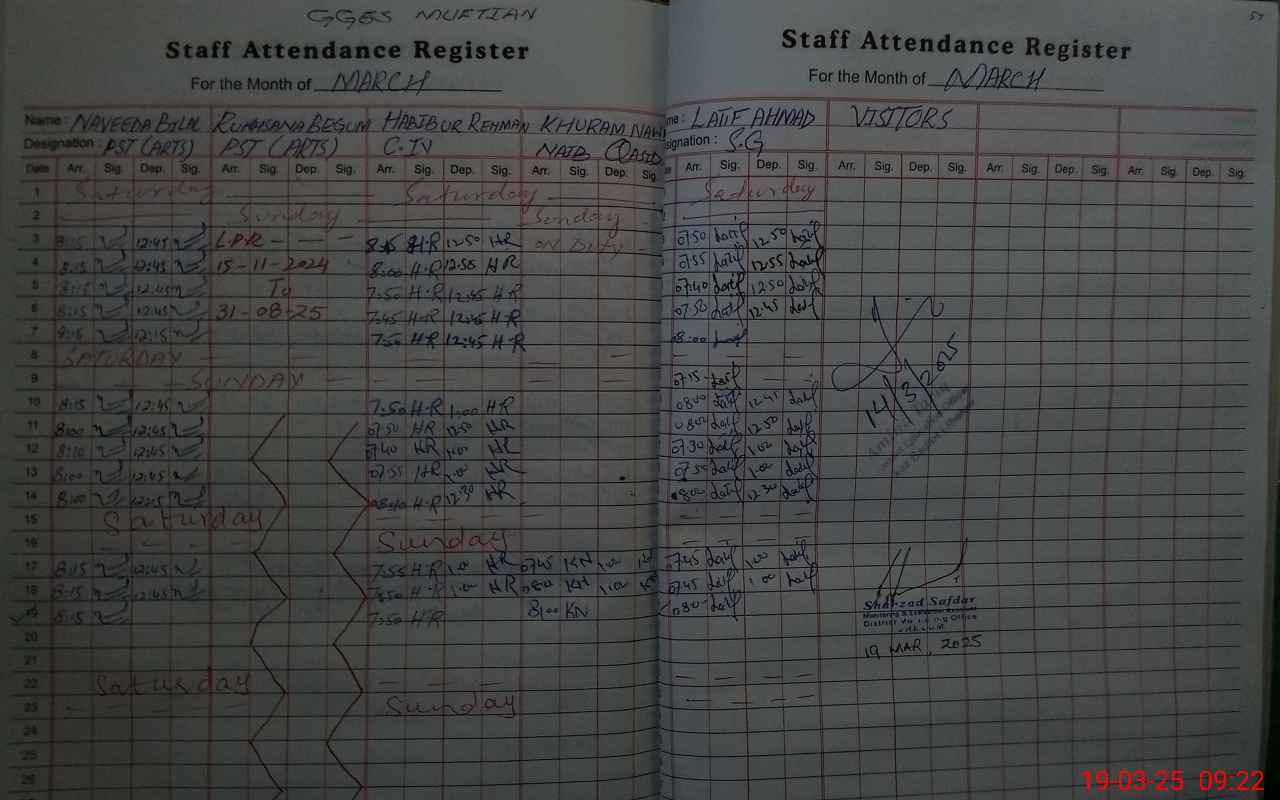 GGES MUFTIAN
Staff Attendance Register
For the Month of MARCH
Name: NAVEEDA BILAL RUKHSANA BEGUM HABIB UR REHMAN KHURAM NAW
Designation: PST (ARTS) PST (ARTS) C.IV NAIB QASID
Date Arr. Sig. Dep. Sig. Arr. Sig. Dep. Sig. Arr. Sig. Dep. Sig. Arr. Sig. Dep. Sig.
1 Saturday Saturday
2 Sunday Sunday
3 8:15 12:45 L.P.R 8:15 H.R 12:50 HR ON Duty
4 8:15 12:45 15-11-2024 8:00 H.R 12:55 HR
5 8:15 12:45 To 7:50 H.R 12:45 H.R
6 8:15 12:45 31-08-25 7:45 H.R 12:45 H.R
7 8:15 12:15 7:50 H.R 12:45 H.R
8 SATURDAY
9 SUNDAY
10 8:15 12:45 7:50 H.R 1:00 HR
11 8:00 12:45 07:50 HR 12:50 HR
12 8:10 12:45 07:40 HR 1:00 HR
13 8:00 12:45 07:55 HR 1:00 HR
14 8:00 12:15 H.R 12:30 HR
15 Saturday
16 Sunday
17 8:15 12:45 7:55 H.R 1:00 HR 07:45 KN 1:00
18 8:15 12:45 7:50 H.R 1:00 HR 08:0 KN 1:00
19 8:15 7:50 HR 8:00 KN
20
21
22 Saturday
23 Sunday
24
25
26
57
Staff Attendance Register
For the Month of MARCH
me: LATIF AHMAD VISITORS
signation: S.G
Arr. Sig. Dep. Sig. Arr. Sig. Dep. Sig. Arr. Sig. Dep. Sig. Arr. Sig. Dep. Sig.
Saturday
07:50 Latif 12:50 Latif
07:55 Latif 12:55 Latif
07:40 Latif 12:50 Latif
07:50 Latif 12:45 Latif
08:00 Latif
07:15 Latif
08:00 Latif 12:45 Latif
08:00 Latif 12:50 Latif
07:30 Latif 1:00 Latif
07:50 Latif 1:00 Latif
8:00 Latif 12:30 Latif
07:45 Latif 1:00 Latif
07:45 Latif 1:00 Latif
08:0 Latif
14/3/2025
Shahzad Safdar
19 MAR, 2025
19-03-25 09:22